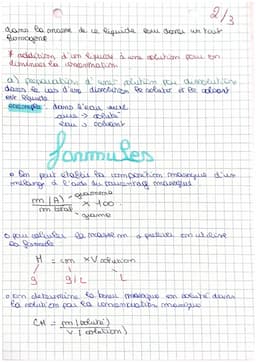 2/3
dans la masse de ce liquide ou dans un tout
homogène
* addition d'un liquide à une solution pour en
diminuer la concentration
a) préparation d'une solution par dissolution
dans le cas d'une dissolution le soluté et le solvant
est liquide
exemple : dans l'eau
soluté
eau → solvant
formules
• On peut établir la composition massique d'un
mélange à l'aide du pourcentage massique
m(A) → gramme
m total → gramme
× 100
• pour calculer la masse m à peser on utilise
la formule
M = cm × V solution
g g/L L
• on détermine la teneur massique en soluté dans
la solution par la concentration massique
CM = m(soluté)
V(solution)